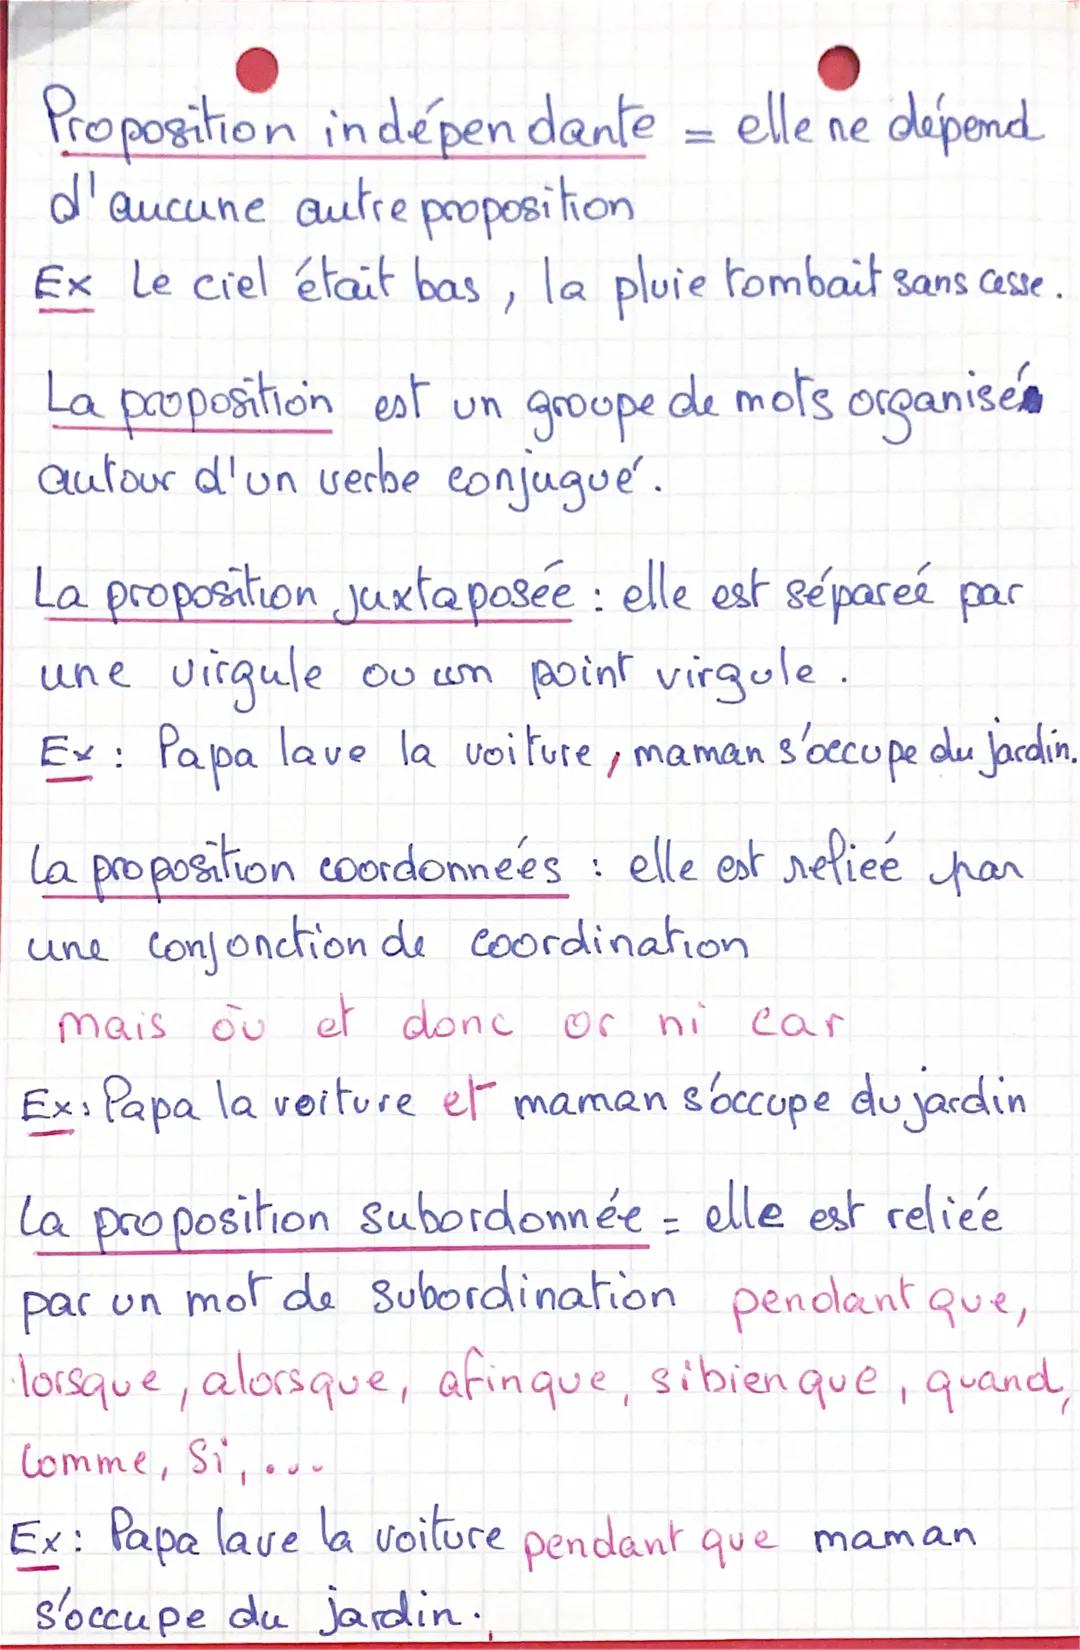 Proposition indépendante = elle ne dépend
d'aucune autre proposition
Ex Le ciel était bas, la pluie tombait sans cesse.
La proposition est un groupe de mots organisé
autour d'un verbe conjugué.
La proposition juxtaposée : elle est séparée par
une virgule ou un point virgule.
Ex : Papa lave la voiture, maman s'occupe du jardin.
La proposition coordonnées : elle est reliée par
une conjonction de coordination
mais où et donc or ni car
Ex : Papa la voiture et maman s'occupe du jardin
La proposition subordonnée = elle est reliée
par un mot de subordination pendant que,
lorsque, alorsque, afinque, sibien que, quand,
Comme, Si, ...
Ex : Papa lave la voiture pendant que maman
s'occupe du jardin.